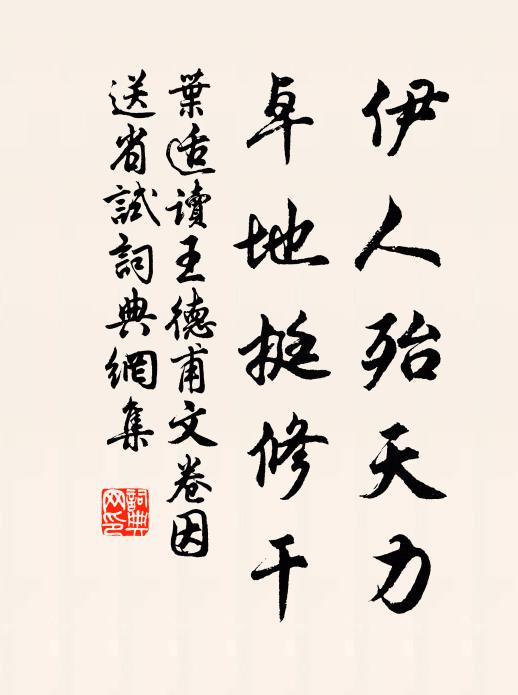 伊人殆天力
卓地挺修干
葉适讀王德甫文卷因
送省試詞典網集
詞典網印